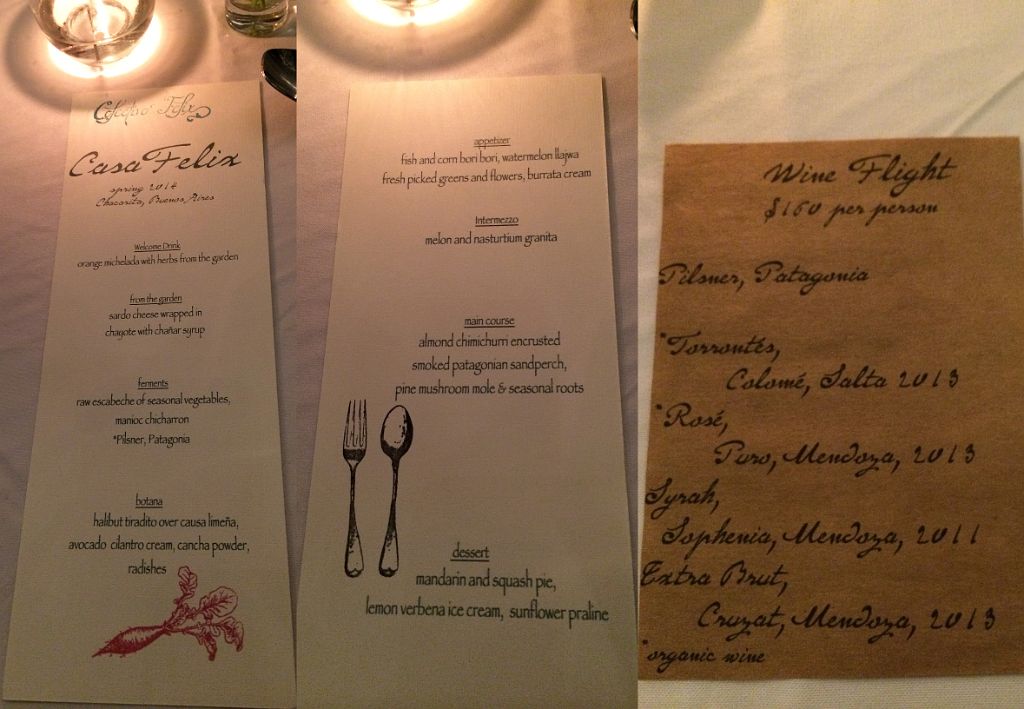 Casa Felix
spring 2014
Chacarita, Buenos Aires
Welcome Drink
orange michelada with herbs from the garden
from the garden
sardo cheese wrapped in
chayote with chañar syrup
ferments
raw escabeche of seasonal vegetables,
manioc chicharron
*Pilsner, Patagonia
botana
halibut tiradito over causa limeña,
avocado cilantro cream, cancha powder,
radishes
appetizer
fish and corn bori bori, watermelon llajwa
fresh picked greens and flowers, burrata cream
Intermezzo
melon and nasturtium granita
main course
almond chimichurri encrusted
smoked patagonian sandperch,
pine mushroom mole & seasonal roots
dessert
mandarin and squash pie,
lemon verbena ice cream, sunflower praline
Wine Flight
$160 per person
Pilsner, Patagonia
*Torrontés,
Colomé, Salta 2013
*Rosé,
Puro, Mendoza, 2013
Syrah,
Sophenia, Mendoza, 2011
Extra Brut,
Cruzat, Mendoza, 2013
*organic wine